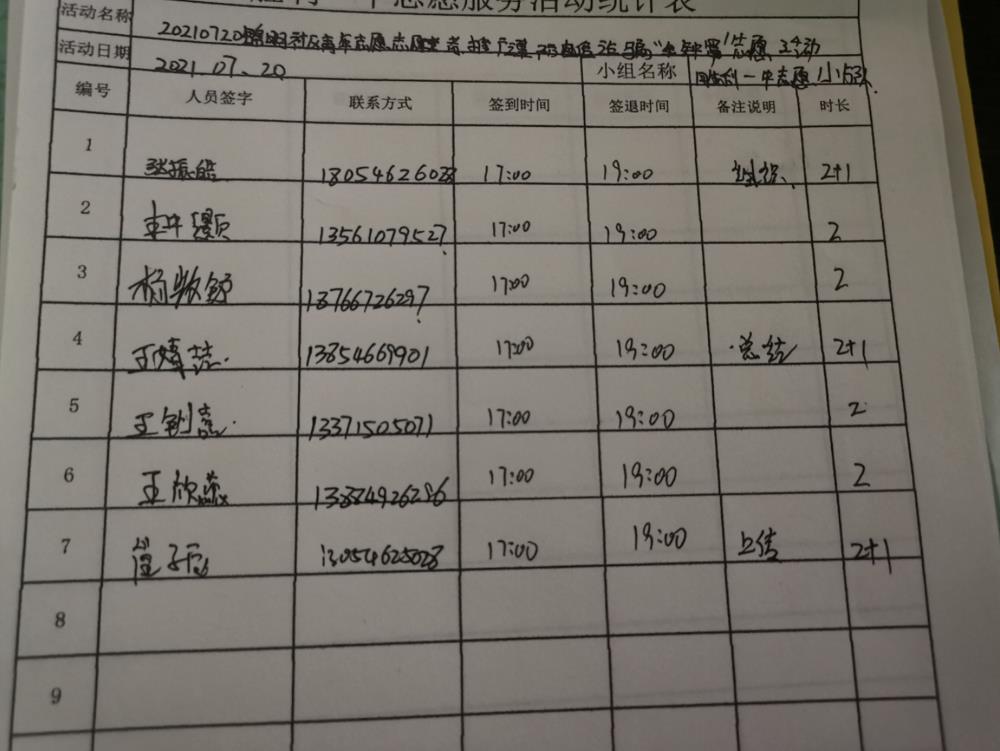 志愿服务活动统计表
活动名称 20210720 社区青年志愿 志愿者 推广 防电信诈骗 志愿活动
活动日期 2021.07.20 小组名称 胜利一中志愿小分队
编号 人员签字 联系方式 签到时间 签退时间 备注说明 时长
1 张振皓 18054626028 17:00 19:00 2+1
2 13561079527 17:00 19:00 2
3 杨 13766726297 17:00 19:00 2
4 王 喆 13854669901 17:00 19:00 总结 2+1
5 王钊 13371505071 17:00 19:00 2
6 王欣 17:00 19:00 2
7 崔子 17:00 19:00 上传 2+1
8
9